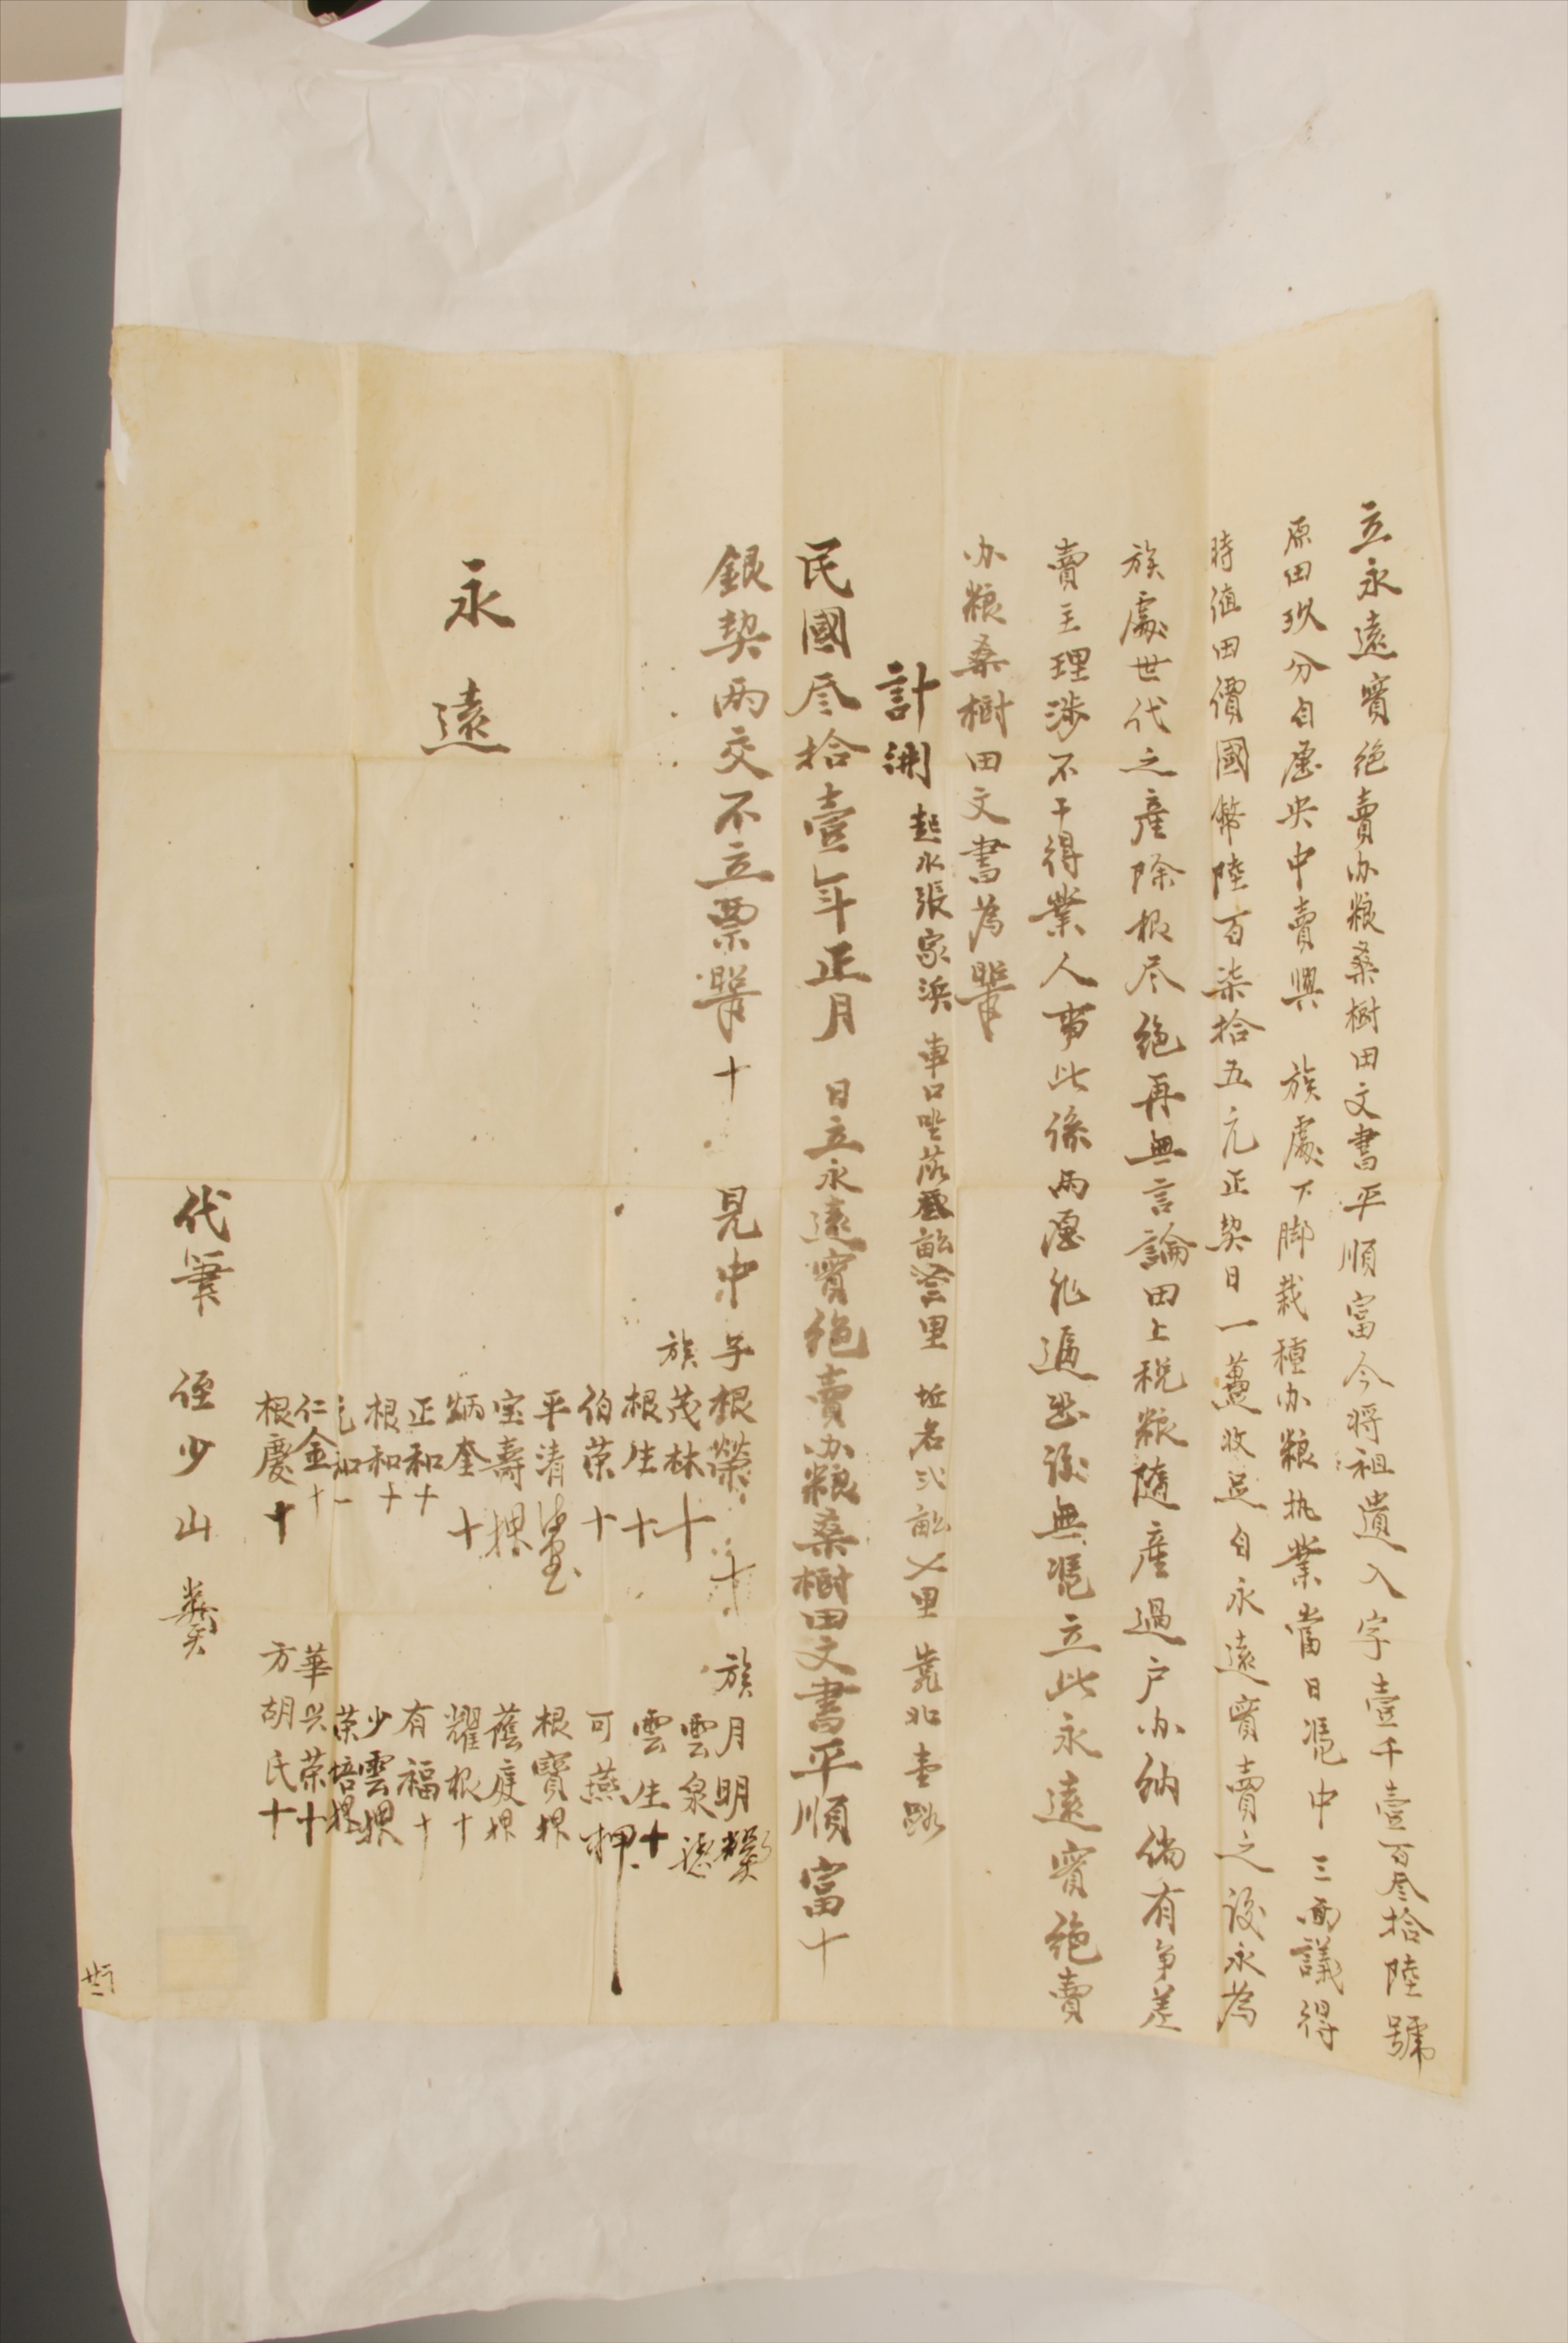 立永遠實絕賣办粮桑樹田文書平順富今將祖遺入字壹千壹百叁拾陸號
原田玖分自愿央中賣與　族處下脚栽種办粮执業當日憑中三面議得
時值田價國幣陸百柒拾五元正契日一䔇收足自永遠實賣之後永為
族處世代之產除根尽絕再無言論田上税粮隨產過户办纳倘有争差
賣主理涉不干得業人事此係两愿非逼恐後無憑立此永遠實絕賣
办粮桑樹田文書為照
計開　起水張家浜　車口坐落　畝　里　坵名弍畝乂里　靠北走路
民國叁拾壹年正月　日立永遠實絕賣办粮桑樹田文書平順富十
銀契两交不立票照十　見中　子根榮十　族月明
族茂林十　雲泉
根生十　雲生十
伯荣十　可燕押
平清　根寶押
宝壽押　蔭庭押
炳奎十　耀根十
正和十　有福十
根和十　少雲押
和　荣培押
仁金十　華興荣十
根慶十　方胡氏十
永遠
代筆　侄少山